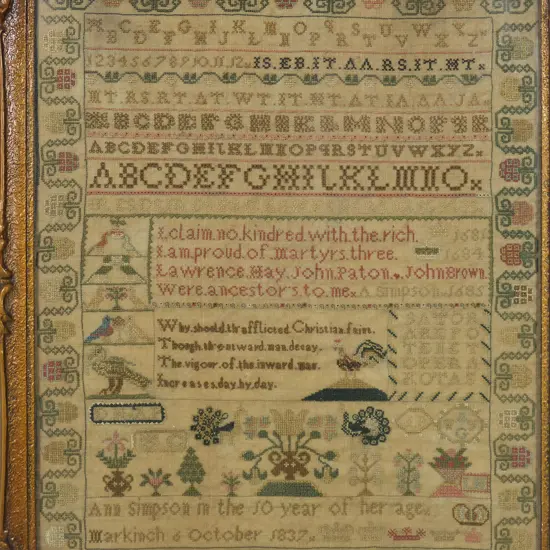 A B C D E F G H I J K L M N O P Q R S T U V W X Y Z
1 2 3 4 5 6 7 8 9 10 11 12 IS.EB.IT.AA.RS.IT.HT.
HT.RS.RT AT.WT.IT.HT.AT IA AA JA
ABCDEFGHIKLMNOP
ABCDEFGHIKLMNOPQRSTUVWXYZ
ABCDEFGHIKLMNO
I.claim.no.kindred.with.the.rich. 1681
I.am.proud.of.martyrs.three. 1684
Lawrence.Hay.John.Paton.John Brown
Were.ancestors.to.me. A Simpson 1685
Why.should.th'afflicted Christian.faint.
Though.th'outward.man.decay.
The.vigour.of.the.inward.man.
Increases.day.by.day.
SATOR
AREPO
TENET
OPERA
ROTAS
Ann Simpson in the 10 year of her age
Markinch 6 October 1837